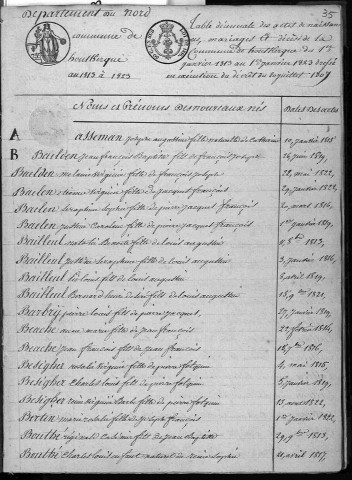 35
Département du Nord
commune de
houtkerque
an 1813 à 1823
Table décennale des actes de naissances,
mariages et décès de la
Commune de houtkerque du 1er
janvier 1813 au 1er janvier 1823 dressé
en exécution du décret du 20 juillet 1807
Noms et Prénoms des nouveaux nés
Dates des actes
A
asseman fille naturelle de 10 janvier 1815
B
Baelden jean françois Baptiste fils de françois joseph 26 juin 1819,
Baelden melanie Virginie fille de françois joseph 28, mai 1822,
Baelen Virginie fille de jacques françois 29 janvier 1822,
Baelen Seraphin Sophie fille de pierre jacques françois 20 mars 1816,
Baelen Caroline fille de pierre jacques françois 1er janvier 1819,
Bailleul natalie fille de louis augustin 11, 8bre 1813,
Bailleul fille de louis augustin 3, janvier 1816,
Bailleul fils de louis augustin 3 avril 1819,
Bailleul Bernard fils de louis augustin 18, 9bre 1821,
Barbry pierre louis fils de pierre jacques, 27, janvier 1819,
Beache anne marie fille de jean françois 22 février 1814,
Beache jean françois fils de jean françois 18, 7bre 1816,
Besègher natalie Virginie fille de pierre 4, mai 1815,
Besegher Charles louis fils de pierre 5, janvier 1819,
Besegher Virginie fille de pierre 13 avril 1822,
Bertin marie fille de joseph françois 1er janvier 1822,
Beuthé fils de jean baptiste 29, 9bre 1813,
Beuthé Charles louis enfant naturel de 11 avril 1817